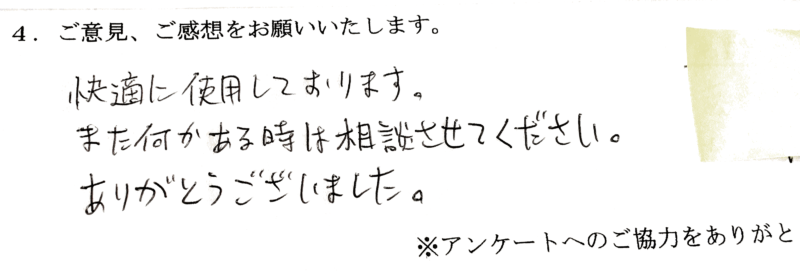 4. ご意見、ご感想をお願いいたします。
快適に使用しております。
また何かある時は相談させてください。
ありがとうございました。
※アンケートへのご協力をありがと